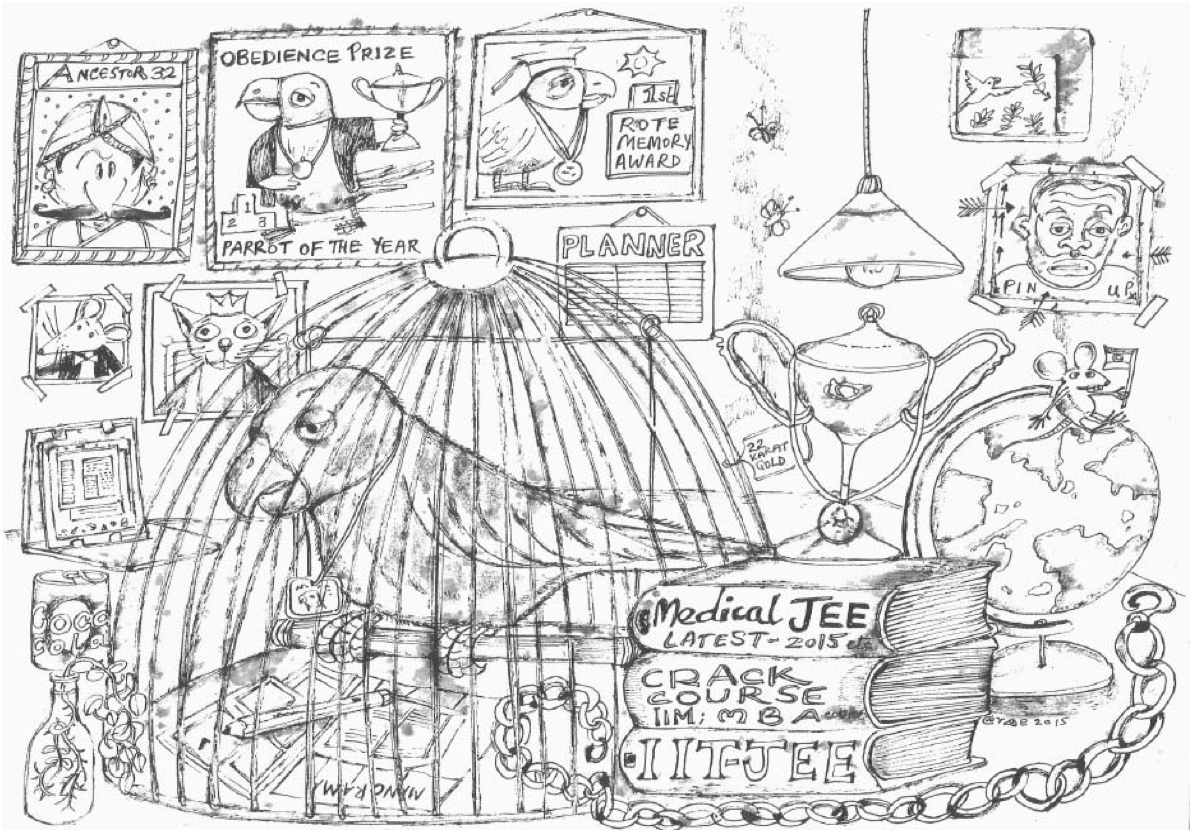 ANCESTOR 32
OBEDIENCE PRIZE
2 1 3
PARROT OF THE YEAR
1st
ROTE
MEMORY
AWARD
PLANNER
PIN UP
22
KARAT
GOLD
Medical JEE
LATEST - 2015
CRACK
COURSE
IIM; MBA
IIT-JEE
2015